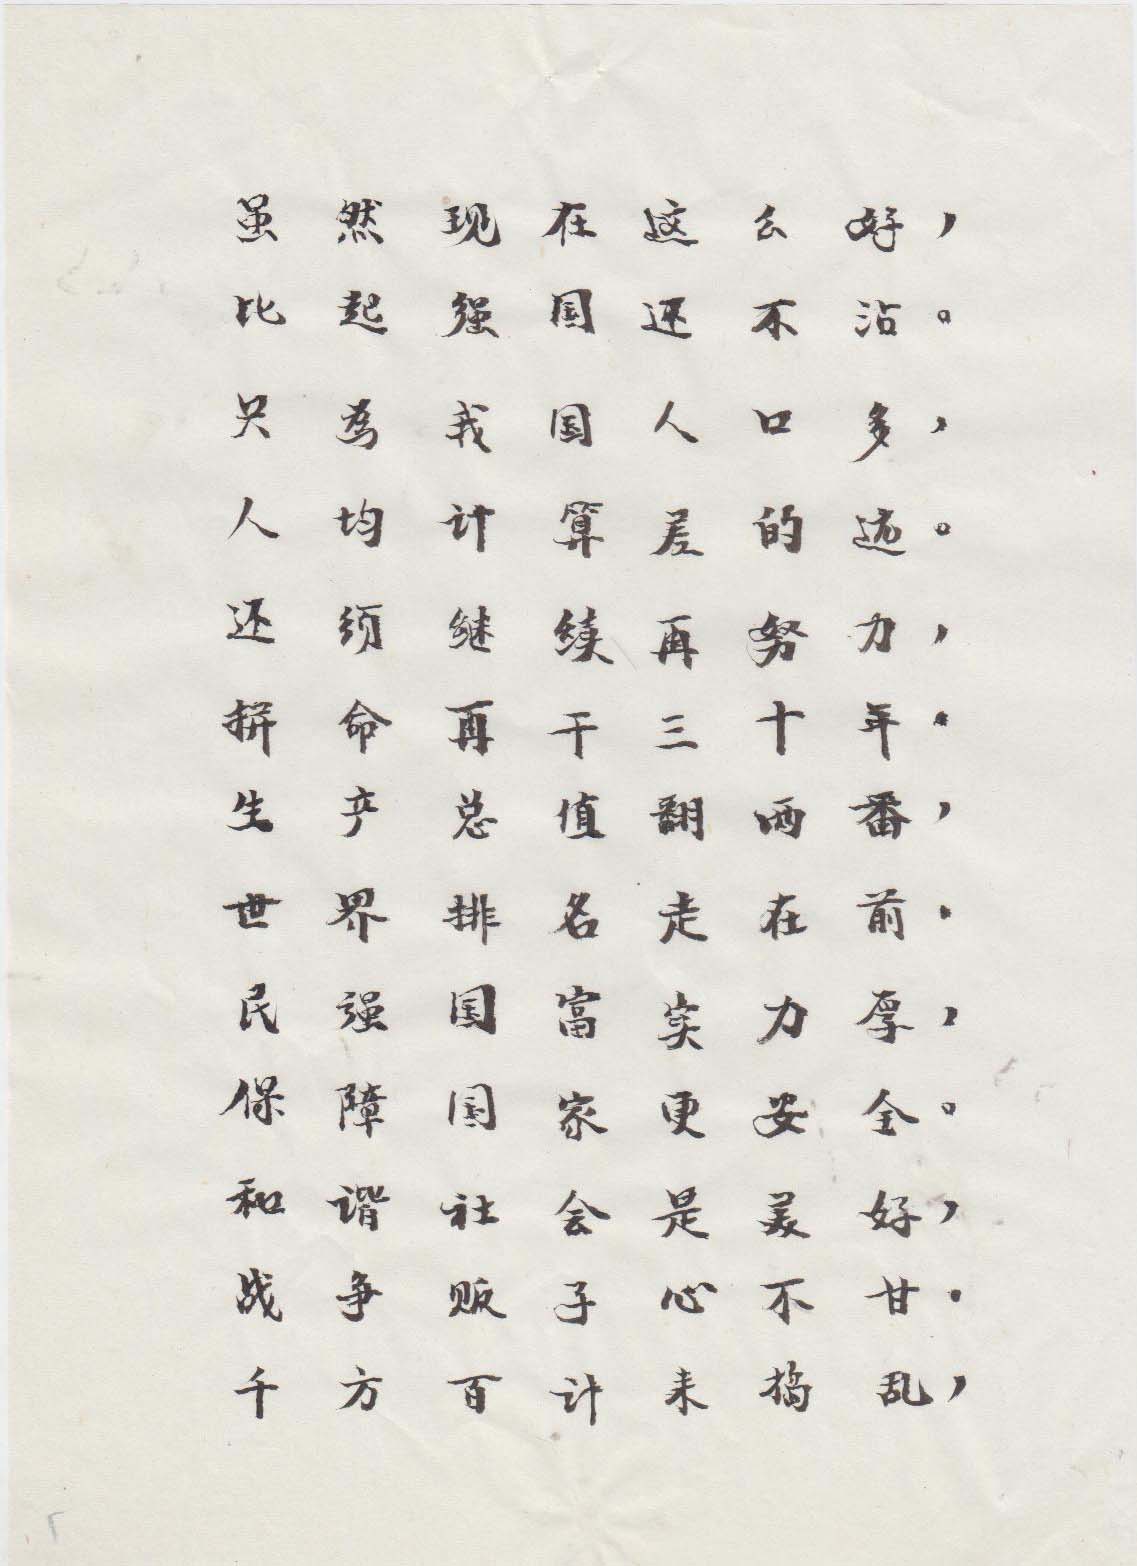 虽然现在这么好，
比起强国还不沾。
只为我国人口多，
人均计算差的远。
还须继续再努力，
拼命再干三十年.
生产总值翻两番，
世界排名走在前.
民强国富实力厚，
保障国家更安全。
和谐社会是美好，
战争贩子心不甘.
千方百计来捣乱，